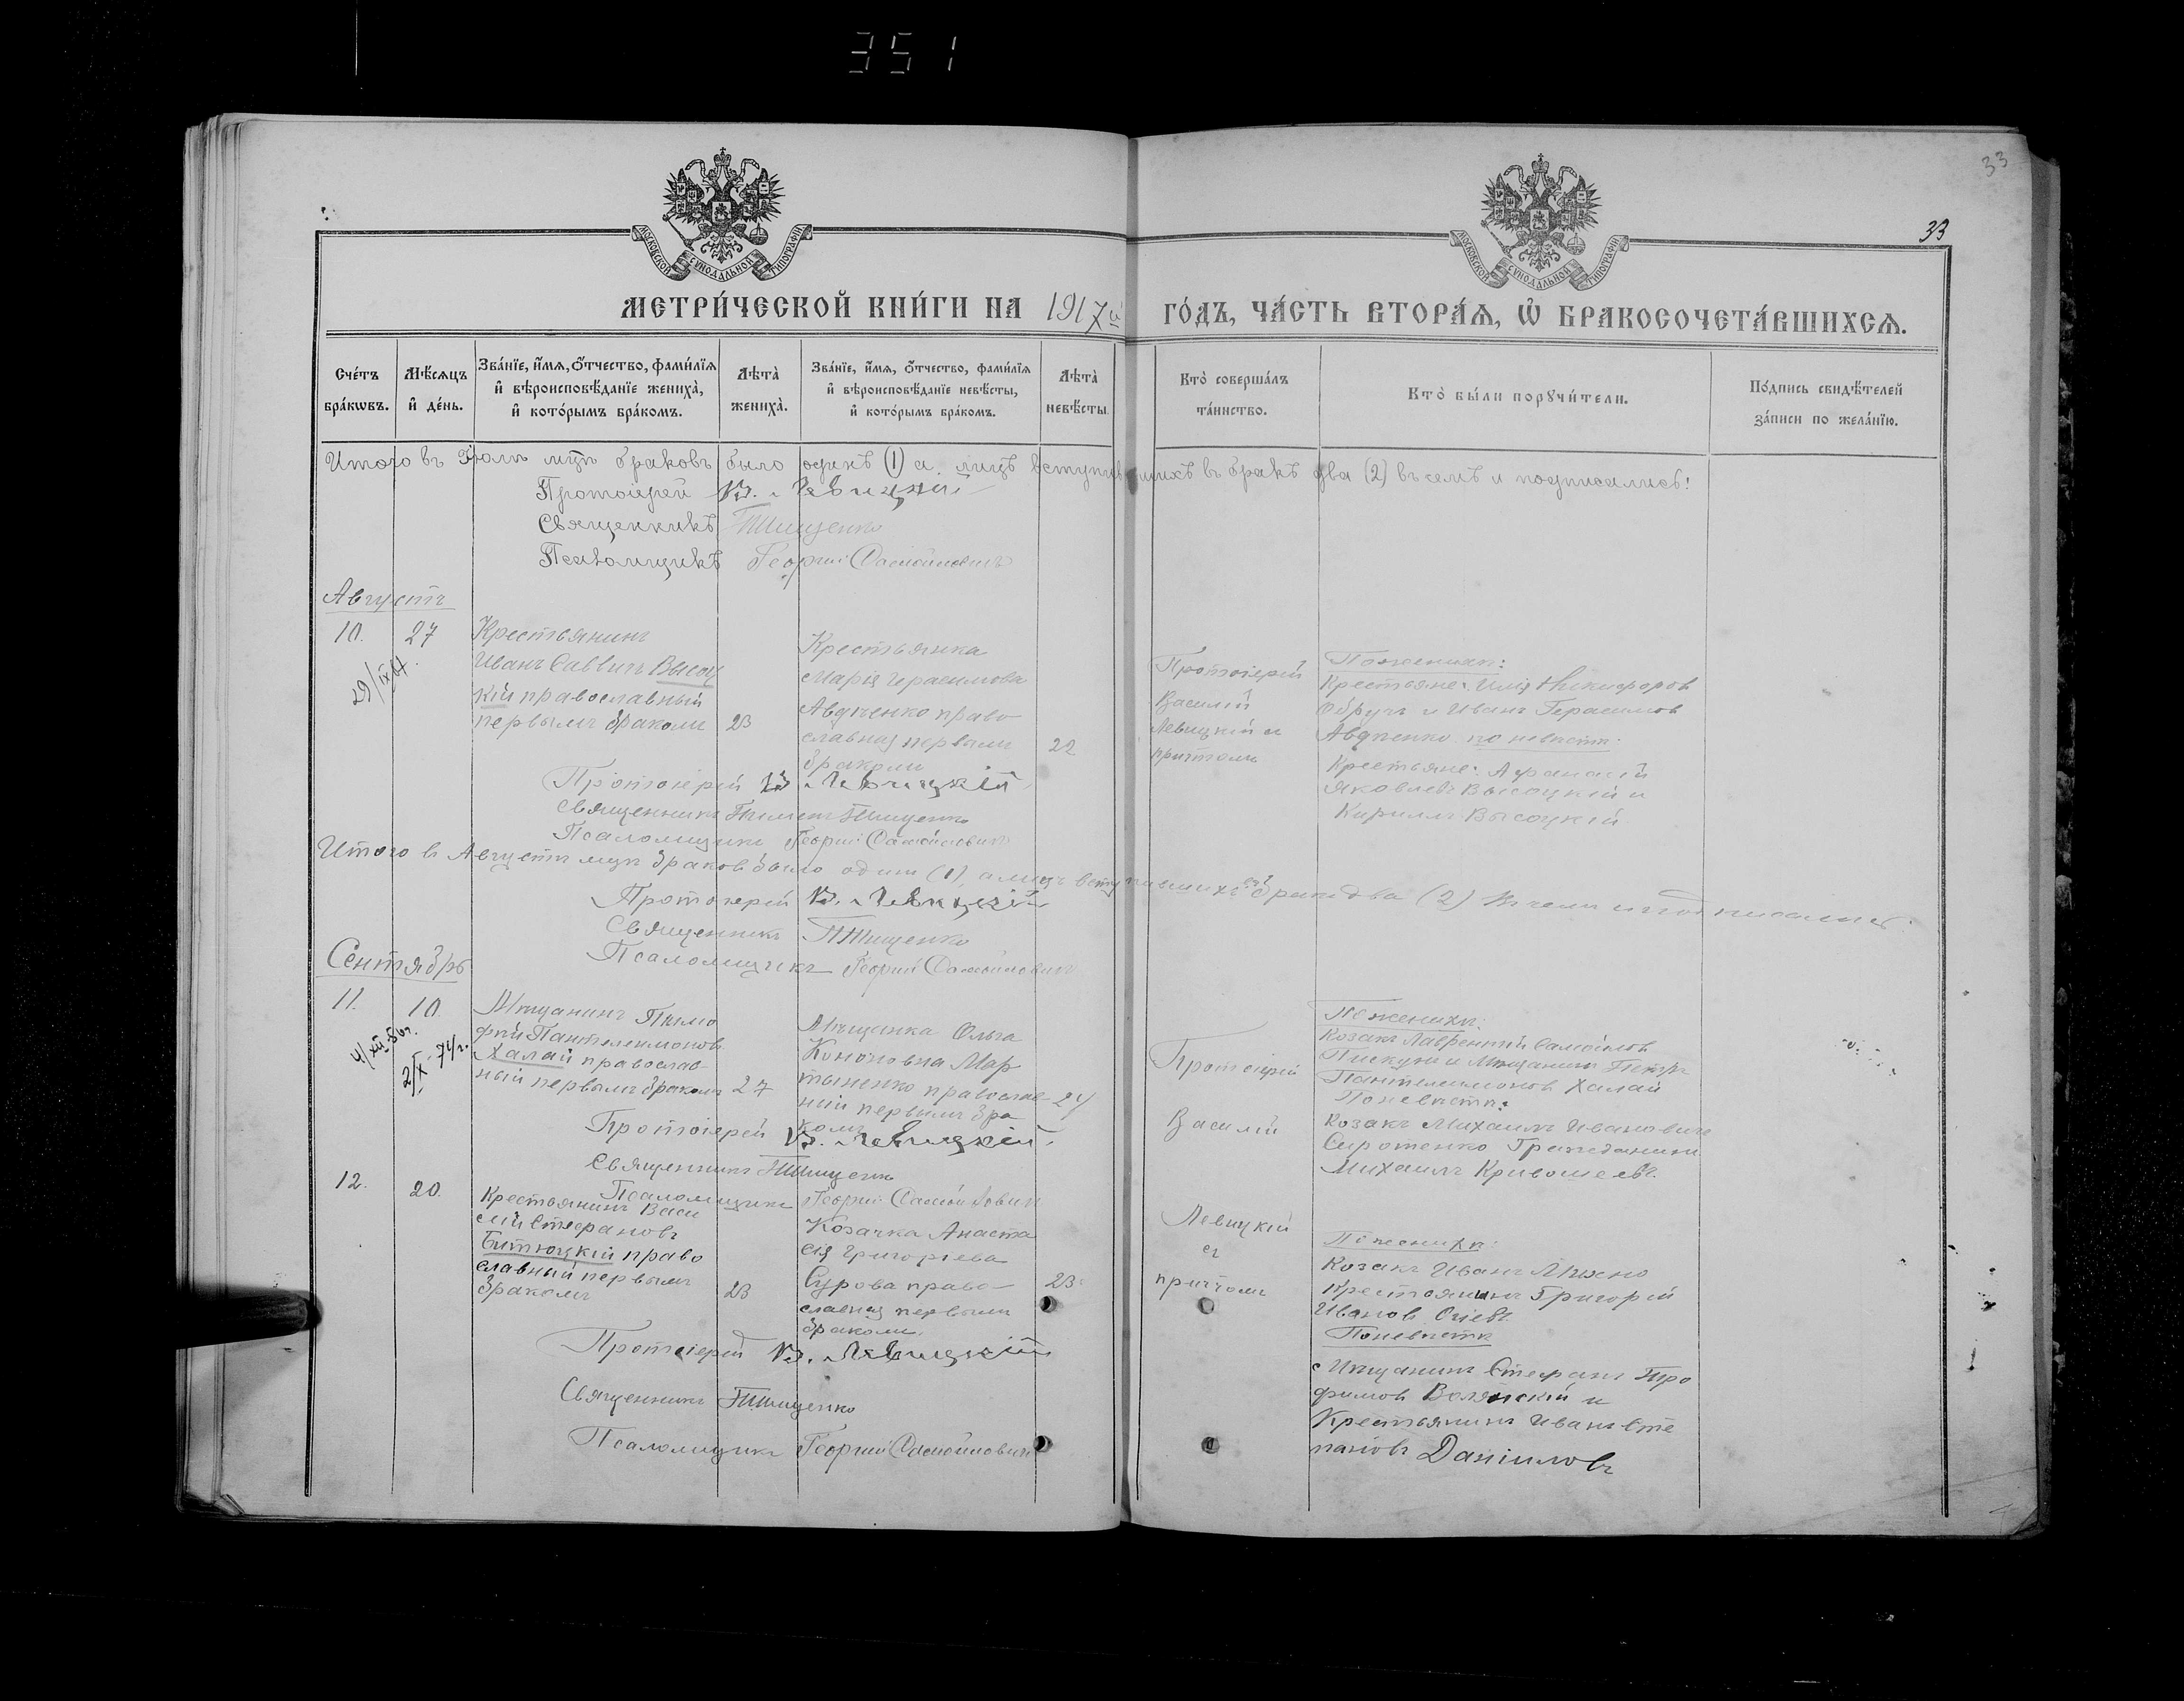 351
33
33
МОСКОВСКОЙ СѴНОДАЛЬНОЙ ТИПОГРАФІИ
МОСКОВСКОЙ СѴНОДАЛЬНОЙ ТИПОГРАФІИ
МЕТРИ́ЧЕСКОЙ КНИ́ГИ НА 1917й ГО́ДЪ, ЧА́СТЬ ВТОРА́Я, Ѡ БРАКОСОЧЕТА́ВШИХСЯ.
Сче́тъ бра́кωвъ.
Мѣ́сяцъ и҆ де́нь.
Зва́нїе, и҆́мя, о҆́тчество, фами́лїя и҆ вѣроисповѣ́данїе жениха̀, и҆ кото́рымъ бра́комъ.
Лѣта̀ жениха̀.
Зва́нїе, и҆́мя, о҆́тчество, фами́лїя и҆ вѣроисповѣ́данїе невѣ́сты, и҆ кото́рымъ бра́комъ.
Лѣта̀ невѣ́сты.
Кто̀ соверша́лъ та́инство.
Кто̀ бы́ли порꙋчи́тели.
По́дпись свидѣ́телей за́писи по жела́нїю.
Итого въ Іюлѣ мцѣ браковъ было одинъ (1) а лицъ вступившихъ въ бракъ два (2) въ семъ и подписались:
Протоіерей В. Левицкій
Священникъ Т Тищенко
Псаломщикъ Георгій Самойловичъ
Августъ
10. 27
29/IX 64.
Крестьянинъ
Иванъ Саввичъ Высоц
кій православный
первымъ бракомъ 23
Крестьянка
Марія Герасимова
Авдѣенко право
славная первымъ 22
бракомъ
Протоіерей
Василій
Левицкій и
причтомъ
По женихѣ:
Крестьяне: Илія Никифоровъ
Обручъ и Иванъ Герасимовъ
Авдѣенко по невѣстѣ:
Крестьяне: Афанасій
Яковлевъ Высоцкій и
Кириллъ Высоцкій
Протоіерей В. Левицкій
Священникъ Тищенко
Псаломщикъ Георгій Самойловичъ
Итого въ Августѣ мцѣ браковъ было одинъ (1), а лицъ вступившихъ въ бракъ два (2) Въ чемъ и подписались:
Протоіерей В. Левицкій
Священникъ Т Тищенко
Псаломщикъ Георгій Самойловичъ
Сентябрь
11. 10.
4/XII 86г.
2/X 74г.
Мѣщанинъ Тимо
фей Пантелеимоновъ
Халай православ
ный первымъ бракомъ 27
Мѣщанка Ольга
Кононовна Мар
тыненко православ 24
ный первымъ бра
комъ
Протоіерей
Василій
Левицкій
съ
причтомъ
По женихѣ:
Козакъ Лаврентій Самойловъ
Пискунъ и Мѣщанинъ Петръ
Пантелеимоновъ Халай
По невѣстѣ:
Козакъ Михаилъ Ивановичъ
Сиротенко Гражданинъ
Михаилъ Кривошеевъ.
Протоіерей В. Левицкій.
Священникъ Т Тищенко
Псаломщикъ Георгій Самойловичъ
12. 20.
Крестьянинъ Васи
лій Стефановъ
Битюцкій право
славный первымъ
бракомъ 23
Козачка Анаста
сія Григоріева
Сурова право 23
славная первымъ
бракомъ.
По женихѣ:
Козакъ Иванъ Михно
Крестьянинъ Григорій
Ивановъ
По невѣстѣ
Мѣщанинъ Стефанъ Тро
фимовъ Волянскій и
Крестьянинъ Иванъ Сте
пановъ Даніиловъ
Протоіерей В. Левицкій
Священникъ Т Тищенко
Псаломщикъ Георгій Самойловичъ